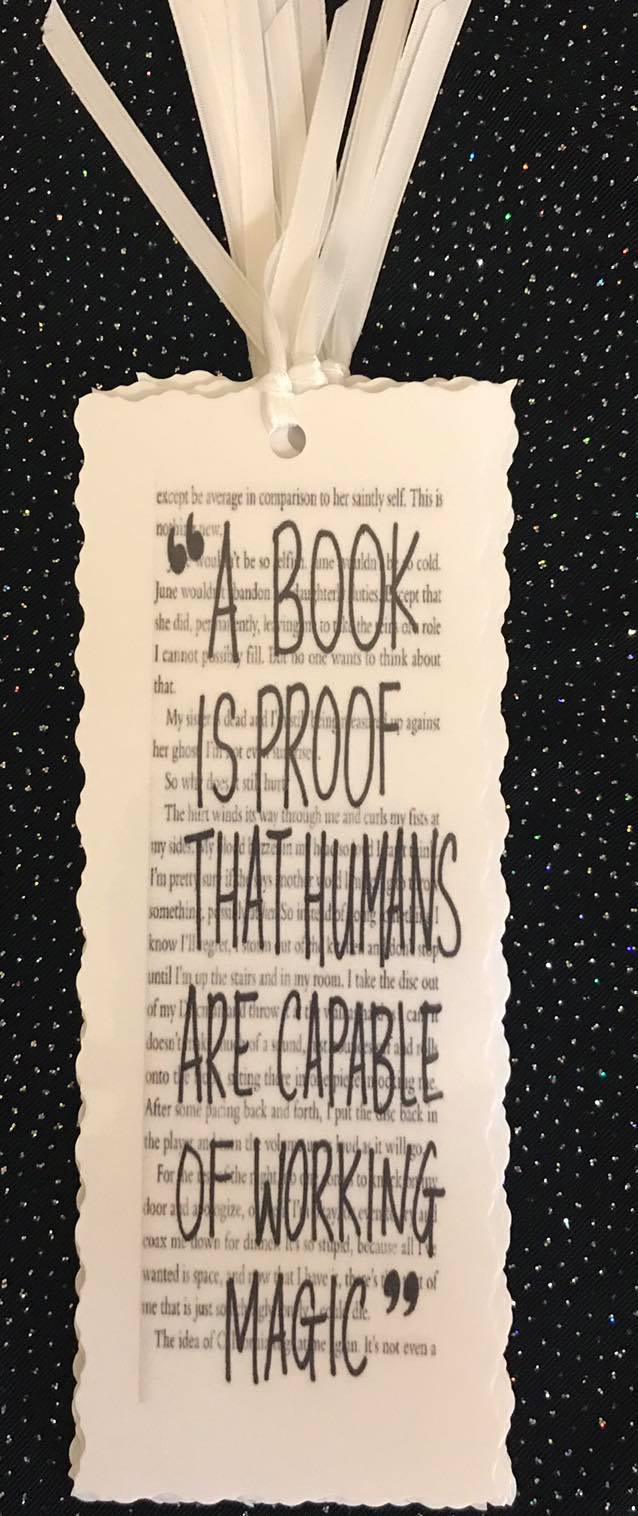 except be average in comparison to her saintly self. This is
nothing new.
“A BOOK
be so cold.
June wouldn't abandon daughterly duties. Except that
she did, permanently, leaving me to take the reins on a role
I cannot possibly fill. But no one wants to think about
that.
IS PROOF
My sister is dead and I'm still being measured up against
her ghost. I'm not even surprised.
So why does it still hurt
The hurt winds its way through me and curls my fists at
THAT HUMANS
my sides. My blood
I'm pretty sure if she says another word I'm
something, So instead of I
know I'll regret, I storm out of the kitchen and don't stop
until I'm up the stairs and in my room. I take the disc out
ARE CAPABLE
of my and throw
doesn't make much of a sound, and rolls
onto the sitting there in one piece, mocking me.
After some pacing back and forth, I put the disc back in
the player and turn the volume up as loud as it will go.
OF WORKING
For the rest of the night, no one comes to knock on my
door and apologize, or and
coax me down for dinner. It's so stupid, because all I've
wanted is space, and now that I have it, there's of
MAGIC”
me that is just so die.
The idea of again. It's not even a